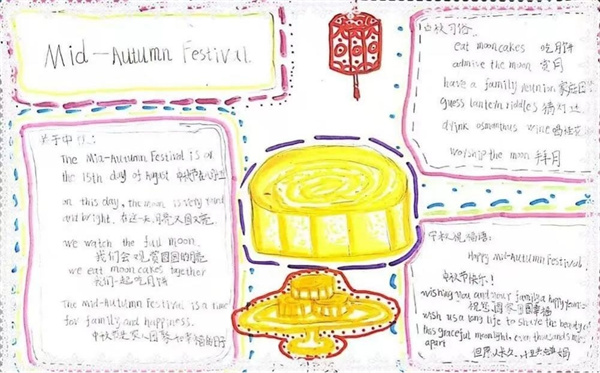 Mid-Autumn Festival
关于中秋:
The Mid-Autumn Festival is on
the 15th day of August 中秋节在八月十五
on this day, the moon is very round
and bright. 在这一天,月亮又圆又亮
we watch the full moon.
我们会观赏圆圆的月亮
we eat mooncakes together
我们一起吃月饼
The Mid-Autumn Festival is a time
for family and happiness.
中秋节是家人团聚和幸福的日子
中秋习俗:
eat mooncakes 吃月饼
admire the moon 赏月
have a family reunion 家庭团
guess lantern riddles 猜灯谜
drink osmanthus wine 喝桂花
worship the moon 拜月
中秋祝福语:
Happy mid-Autumn Festival.
中秋节快乐!
wishing you and your family a happy
祝您阖家
wish us a long life to share the beauty of
this graceful moonlight, even thousands miles
apart
但愿人长久,